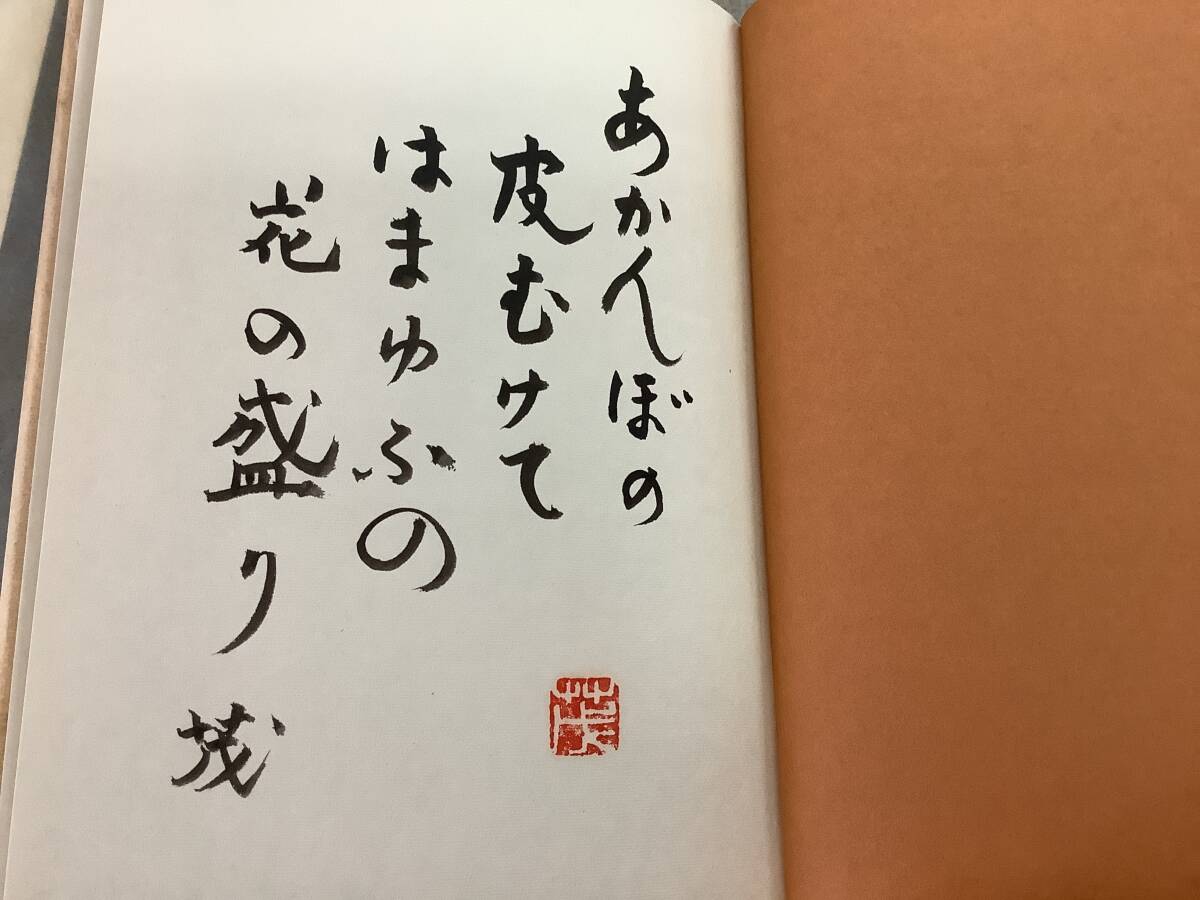 あかんぼの
皮むけて
はまゆふの
花の盛り
茂
茂